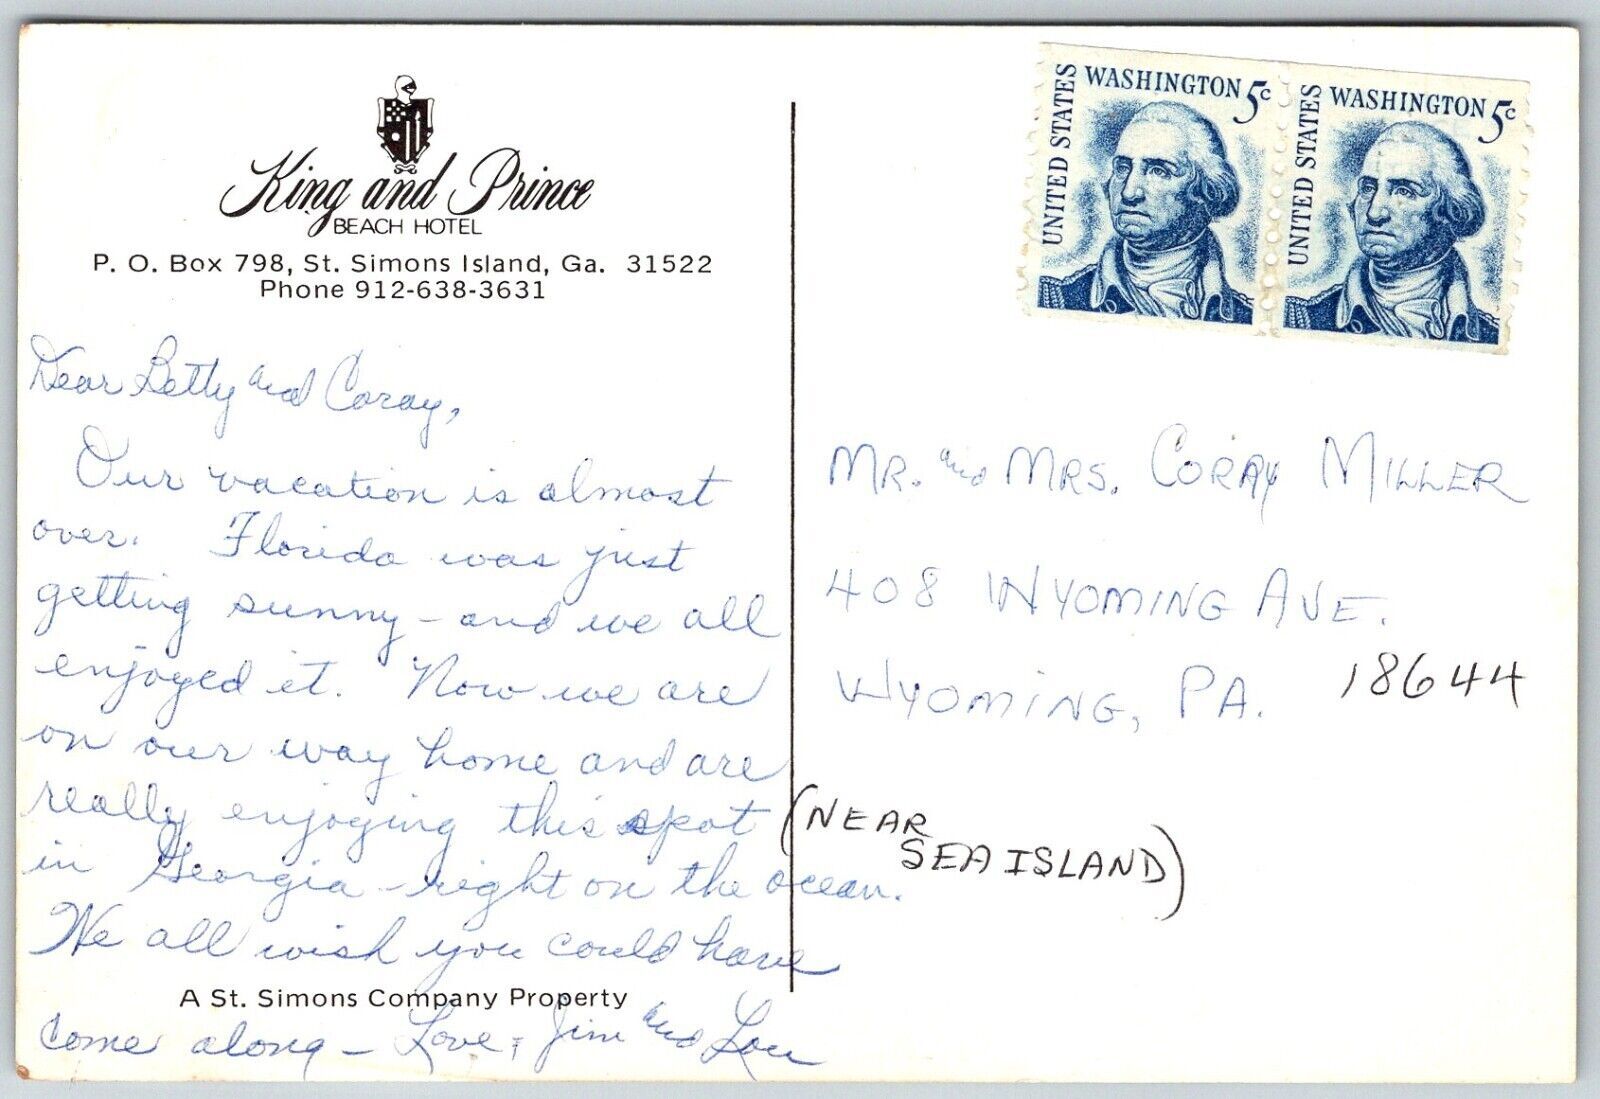 King and Prince
BEACH HOTEL
P. O. Box 798, St. Simons Island, Ga. 31522
Phone 912-638-3631
Dear Betty and Coray,
Our vacation is almost
over. Florida was just
getting sunny - and we all
enjoyed it. Now we are
on our way home and are
really enjoying this spot
in Georgia - right on the ocean.
We all wish you could have
A St. Simons Company Property
come along - Love, Jim and Lou
UNITED STATES
WASHINGTON 5c
UNITED STATES
WASHINGTON 5c
MR. and MRS. CORAY MILLER
408 WYOMING AVE.
WYOMING, PA. 18644
(NEAR
SEA ISLAND)